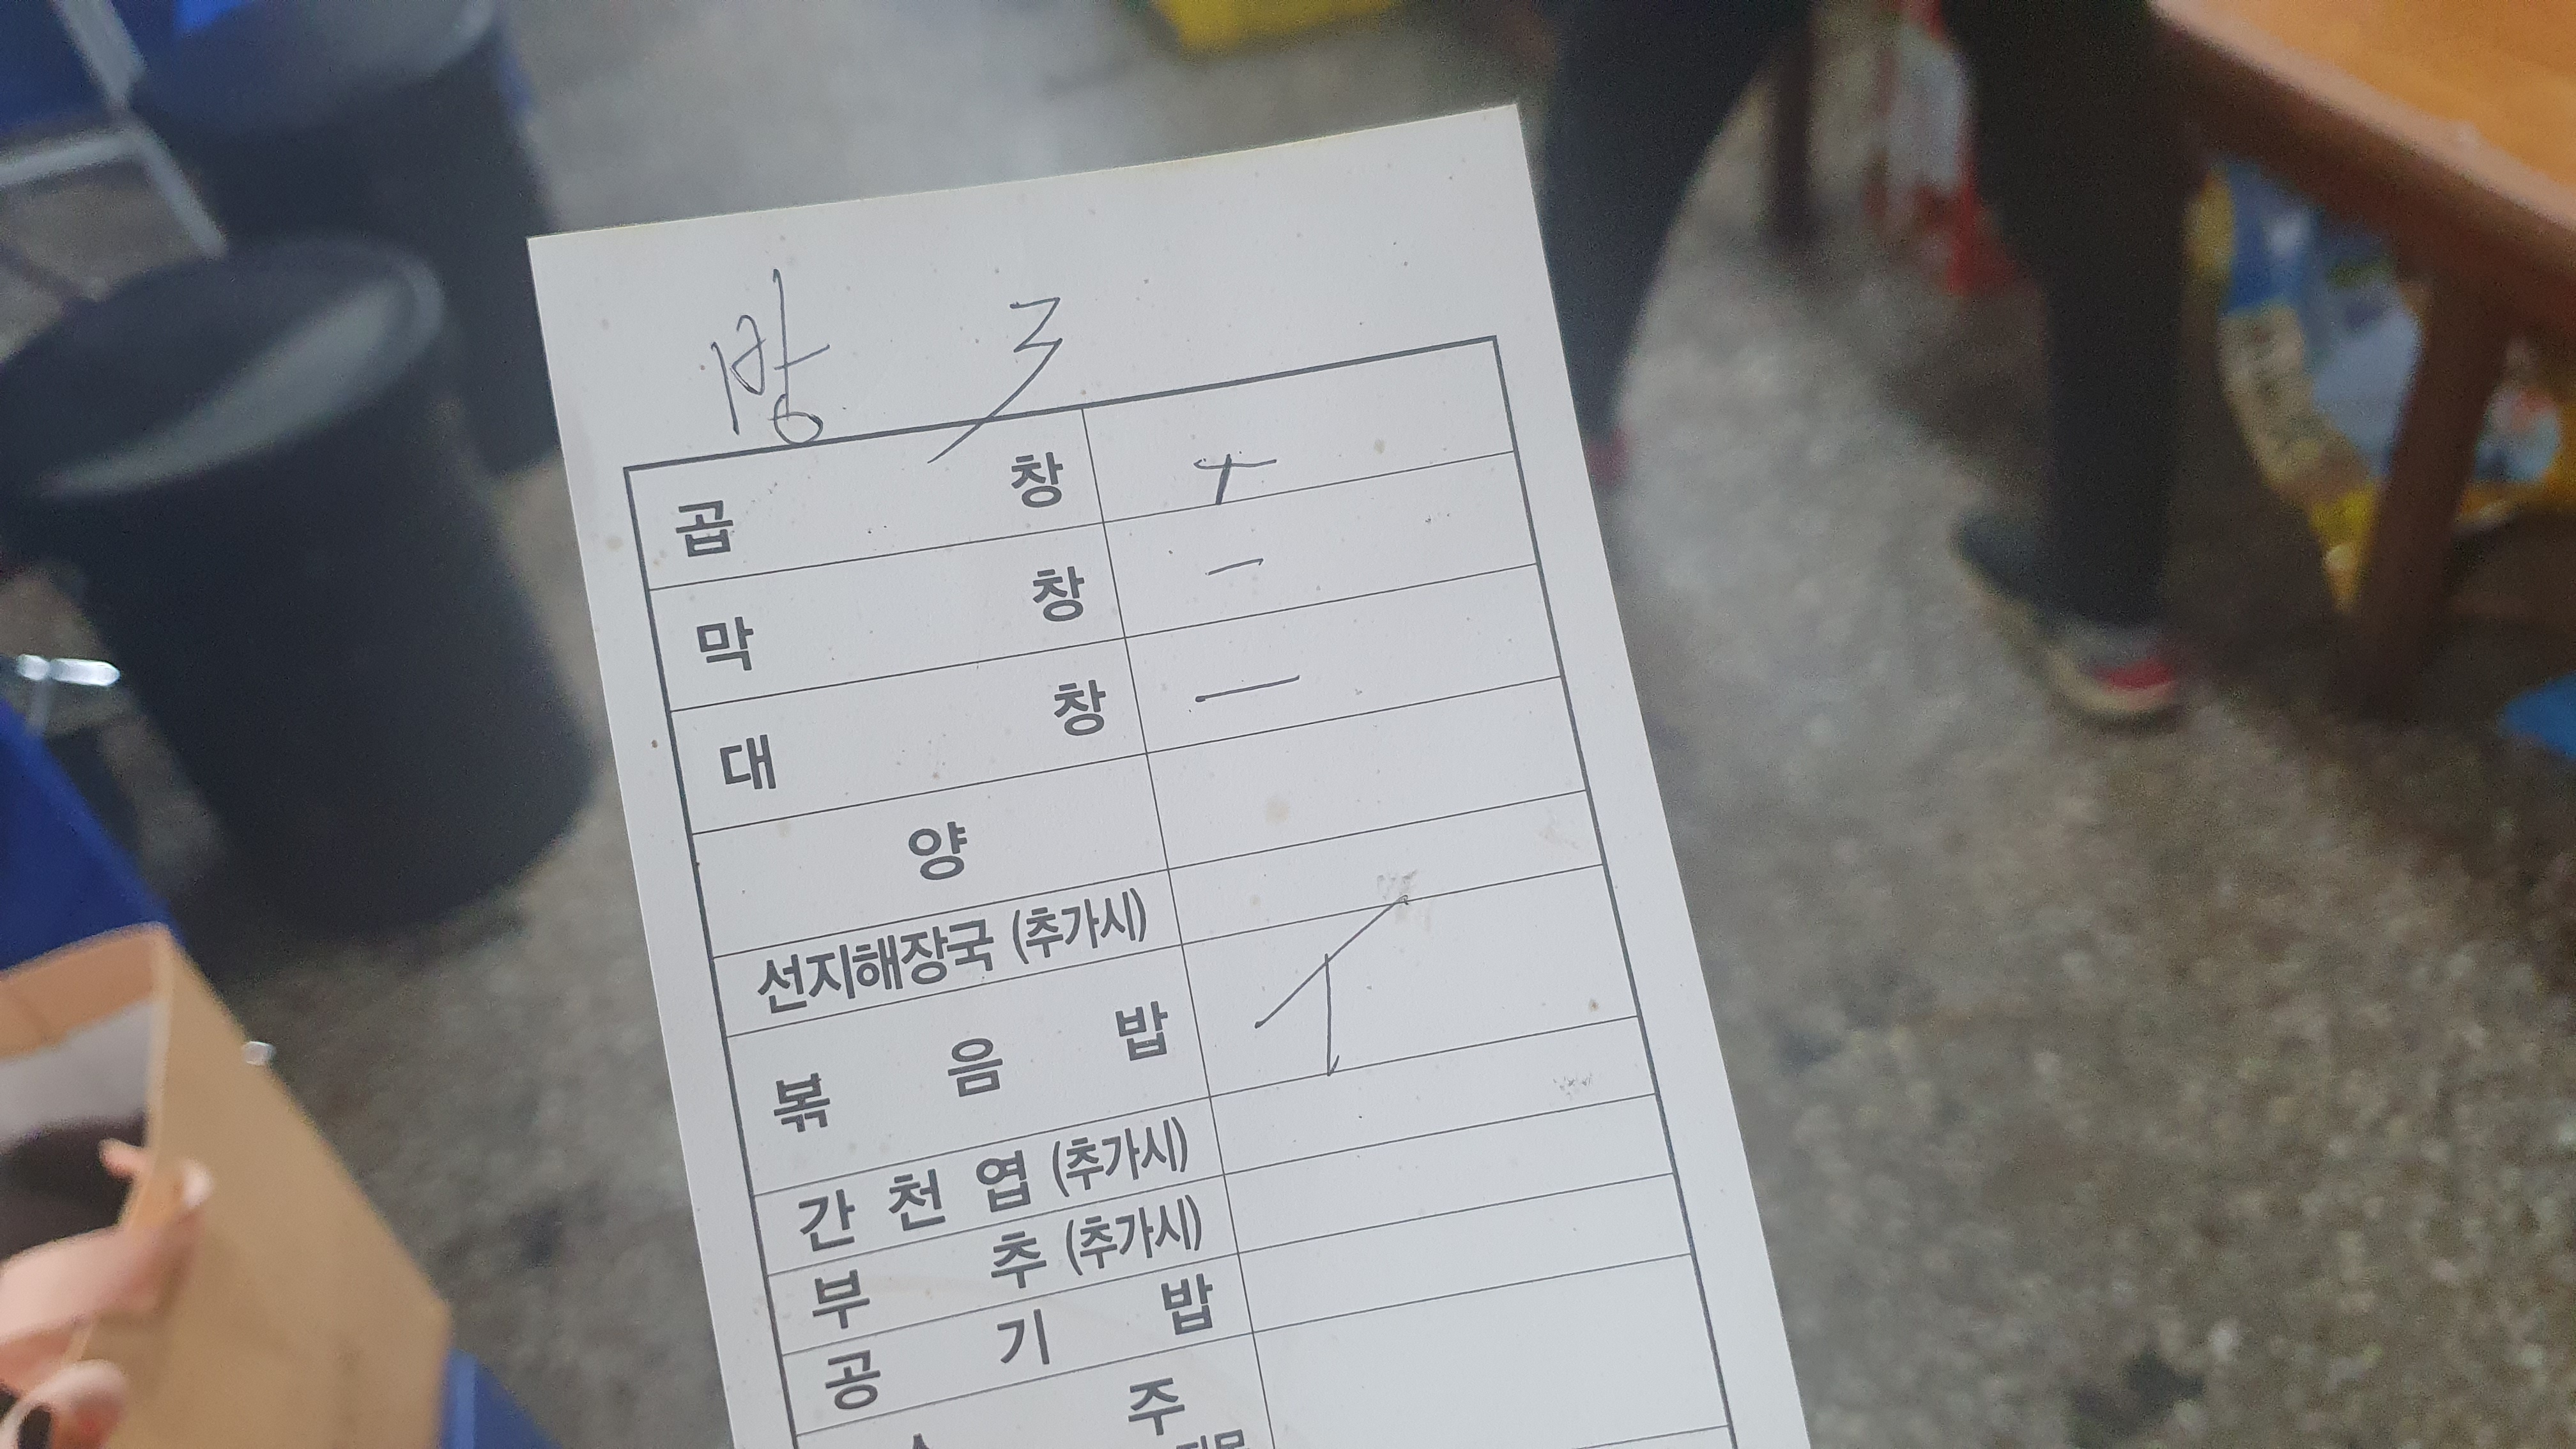 방 3
곱창 ㅜ
막창 ㅡ
대창 ㅡ
양
선지해장국 (추가시)
볶음밥
간천엽 (추가시)
부추 (추가시)
공기밥
주